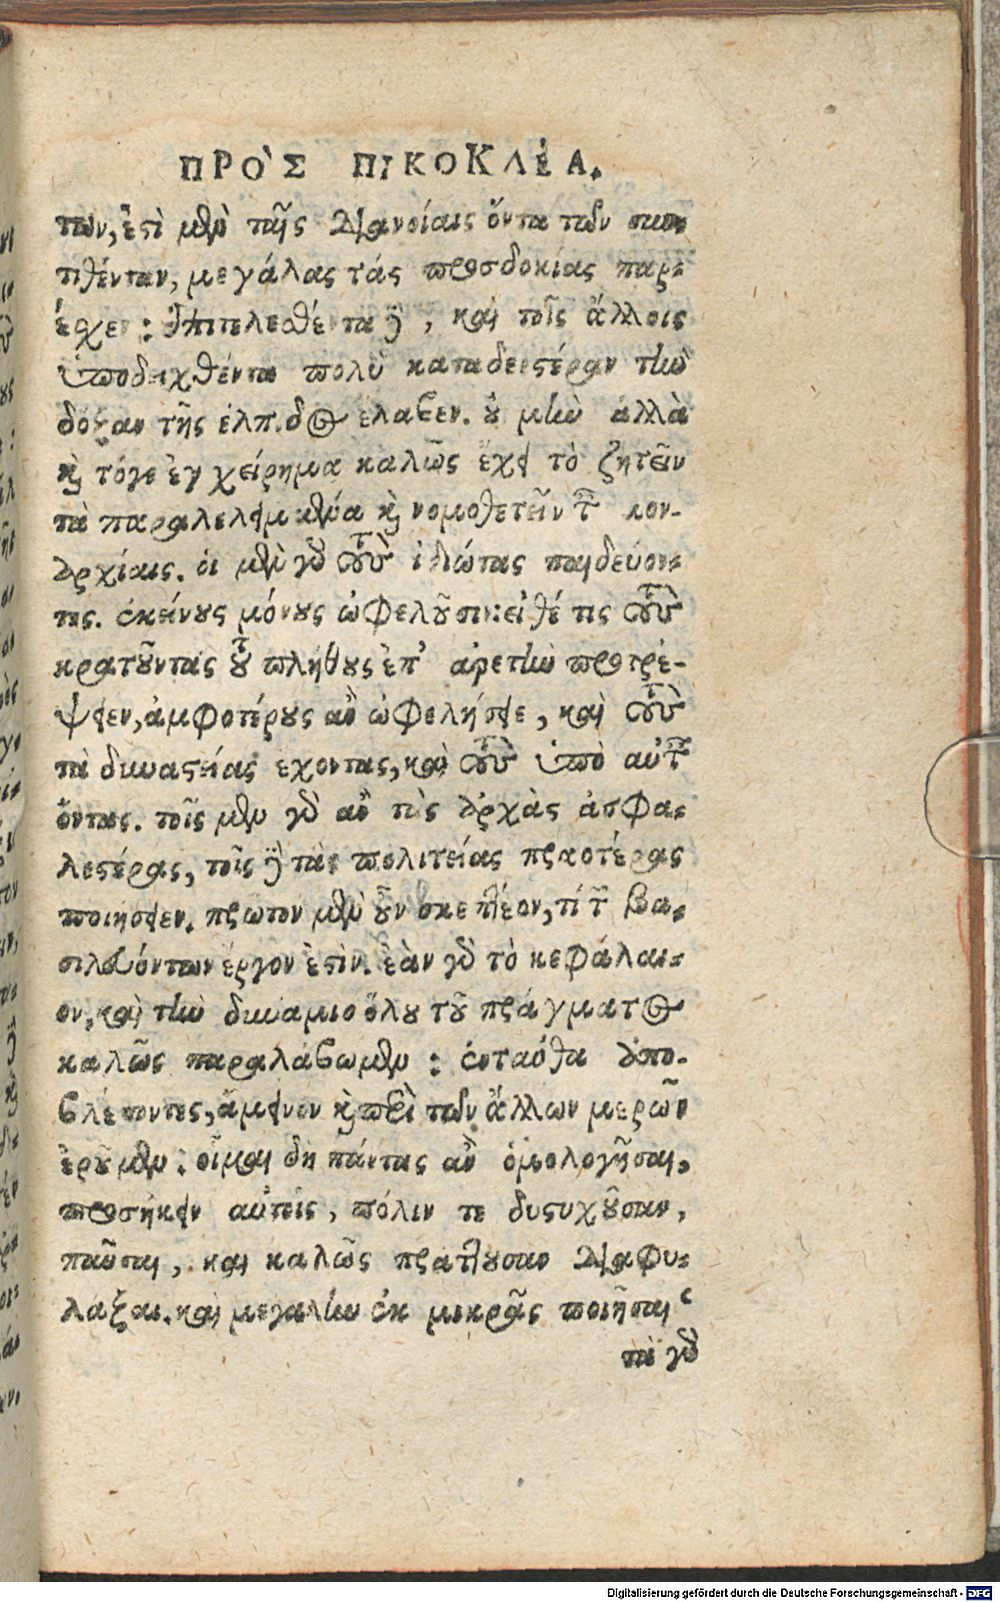 ΠΡΟ῍Σ ΠΙΚΟΚΛΈΑ.
των, ἔτι μὲν ταῖς διανοίαις ὄντα τῶν συν
τιθέντων, μεγάλας τάς προσδοκίας παρ-
έσχεν: ἐπιτελεσθέντα δὲ, καὶ τοῖς ἄλλοις
ὑποδειχθέντα πολὺ καταδεεστέραν τὴν
δόξαν τῆς ἐλπίδος ἔλαβεν. οὐ μὴν ἀλλὰ
καὶ τόγε ἐγχείρημα καλῶς ἔχει τὸ ζητεῖν
τὰ παραλελειμμένα καὶ νομοθετεῖν τ͂
αρχίαις. οἱ μὲν γὸ τοὺς ἰδιώτας παιδεύον-
τες. ἐκείνους μόνους ὠφελοῦσιν: εἰ δέ τις τοὺς
κρατοῦντας τοῦ πλήθους ἐπ' ἀρετὴν προτρέ-
ψειεν, ἀμφοτέρους ἂν ὠφελήσειε, καὶ τοὺς
τὰ δυναστείας ἔχοντας, καὶ τοὺς ὑπὸ αὐτ͂
ὄντας. τοῖς μὲν γὸ ἂν τὰς ἀρχὰς ἀσφα-
λεστέρας, τοῖς δὲ τὰς πολιτείας πραοτέρας
ποιήσειεν. πρῶτον μὲν οὖν σκεπτέον, τί τ͂ βα-
σιλευόντων ἔργον ἐστὶν. ἐὰν γὸ τὸ κεφάλαι-
ον, καὶ τὴν δύναμιν ὅλου τοῦ πράγματος
καλῶς παραλάβωμεν: ἐνταῦθα ἀπο-
βλέποντες, ἄμεινον καὶ περὶ τῶν ἄλλων μερῶν
ἐροῦμεν: οἶμαι δὴ πάντας ἂν ὁμολογῆσαι,
προσήκειν αὐτοῖς, πόλιν τε δυστυχοῦσαν,
παῦσαι, καὶ καλῶς πράττουσαν διαφυ-
λάξαι. καὶ μεγάλην ἐκ μικρᾶς ποιῆσαι
τὰ γὸ
Digitalisierung gefördert durch die Deutsche Forschungsgemeinschaft - DFG